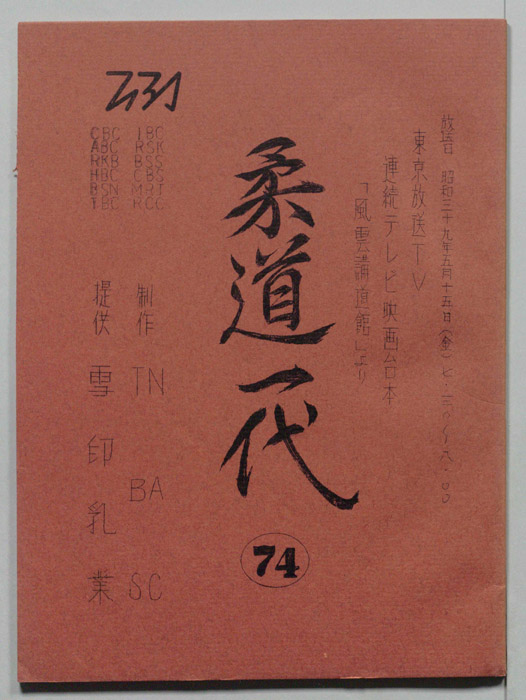 昭和三十九年五月十五日(金)七・三〇〜八・〇〇
東京放送TV
連続テレビ映画台本
「風雲講道館」より
柔道一代
74
CBC IBC
ABC RSK
RKB BSS
HBC CBS
BSN MRT
TBC RCC
制作 TBS NAC
提供 雪印乳業